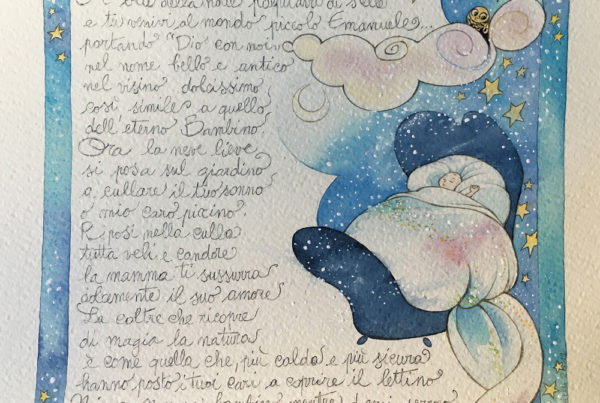 della notte di stelle
e ti vennivi al mondo piccolo Emanuele...
portando "Dio con noi"
nel nome bello e antico
nel visino dolcissimo
così simile a quello
dell'eterno Bambino.
Ora la neve lieve
si posa sul giardino
a cullare il tuo sonno
o mio caro piccino.
Riposi nella culla
tutta veli e candore
la mamma ti sussurra
adamente il suo amore
La coltre che ricopre
di magia la natura
è come quella che, più calda e più sicura
hanno posto i tuoi cari a coprire il lettino
mentre dormi sereno